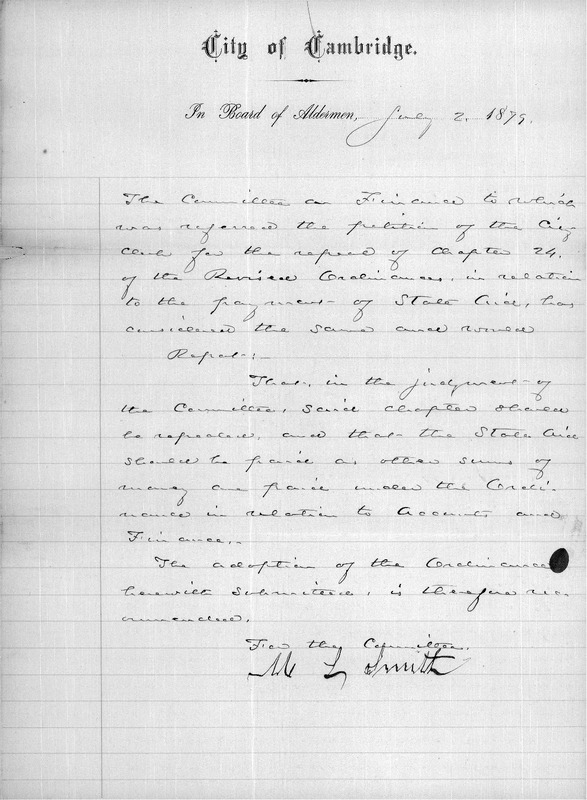 City of Cambridge.
In Board of Aldermen, July 2. 1879.
The Committee on Finance to which
was referred the petition of the City
Clerk for the repeal of Chapter 24.
of the Revised Ordinances, in relation
to the payment of State Aid, has
considered the same and would
Report:-
That, in the judgment of
the Committee, said chapter should
be repealed, and that the State Aid
should be paid as other sums of
money are paid under the Ordi-
nance in relation to Accounts and
Finance.-
The adoption of the Ordinance
herewith submitted, is therefore rec-
ommended.
For the Committee.
M L Smith